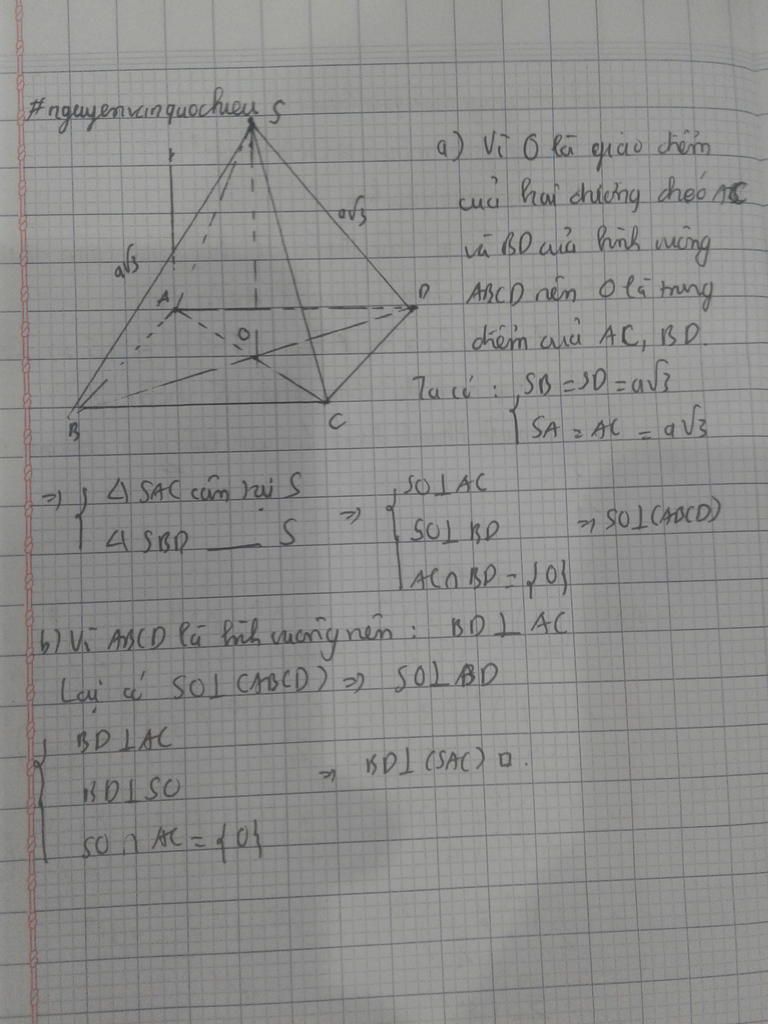 #nguyenvanquochieu
S
a√3
a√3
A
D
O
B
C
a) Vì O là giao điểm
của hai đường chéo AC
và BD của hình vuông
ABCD nên O là trung
điểm của AC, BD.
Ta có: { SB = SD = a√3
SA = AC = a√3
=> { Δ SAC cân tại S
Δ SBD ___ S
=> { SO ⊥ AC
SO ⊥ BD
AC ∩ BD = {O}
=> SO ⊥ (ABCD)
b) Vì ABCD là hình vuông nên: BD ⊥ AC
Lại có SO ⊥ (ABCD) => SO ⊥ BD
{ BD ⊥ AC
BD ⊥ SO
SO ∩ AC = {O}
=> BD ⊥ (SAC) □.